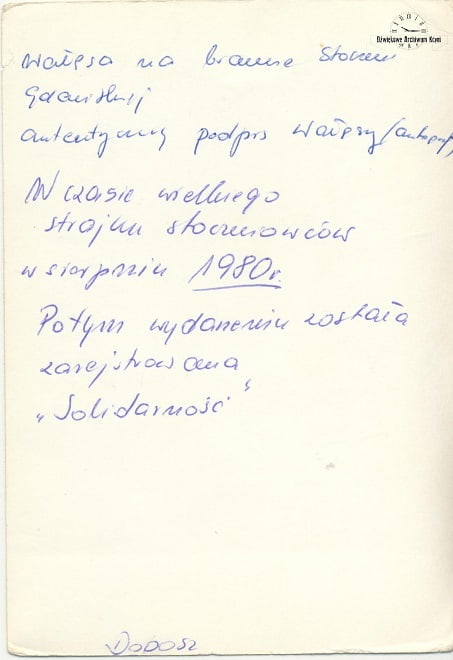 Dźwiękowe Archiwum Kcyni
Wałęsa na bramie Stoczni
Gdańskiej
autentyczny podpis Wałęsy (autograf)
W czasie wielkiego
strajku stoczniowców
w sierpniu 1980r.
Potym wydarzeniu została
zarejstrowana
„Solidarność”
Dobosz